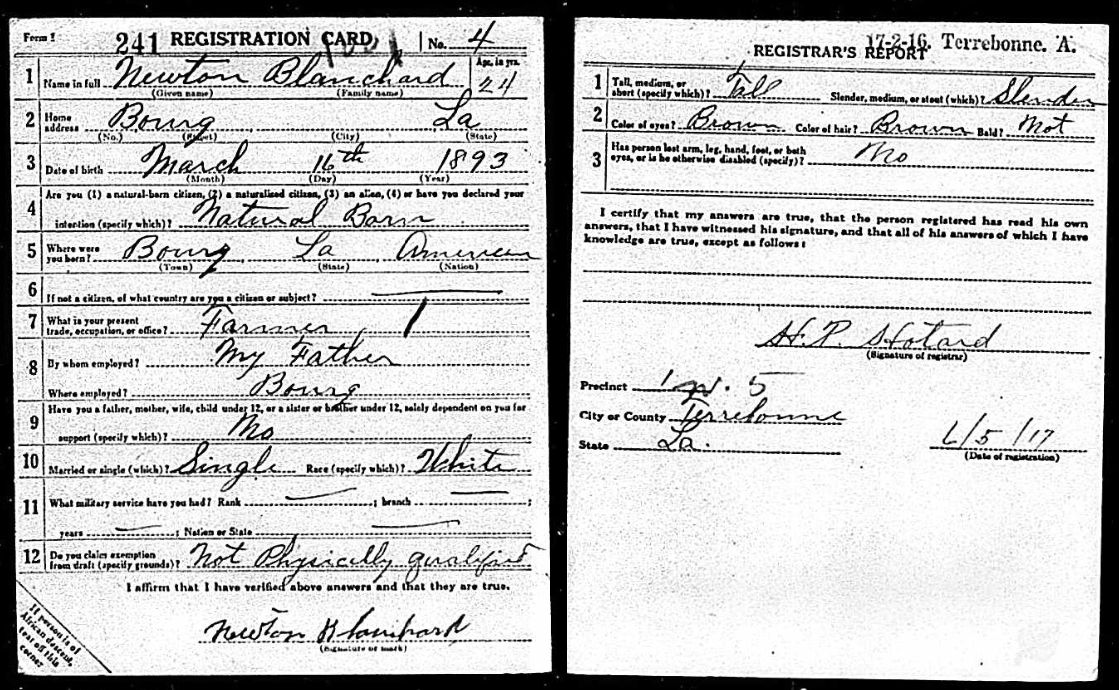 Form 1 241 REGISTRATION CARD No. 4
1 Name in full Newton Blanchard Age, in yrs. 24
(Given name) (Family name)
2 Home address Bourg La
(No.) (Street) (City) (State)
3 Date of birth March 16th 1893
(Month) (Day) (Year)
4 Are you (1) a natural-born citizen, (2) a naturalized citizen, (3) an alien, (4) or have you declared your
intention (specify which)? Natural Born
5 Where were you born? Bourg La American
(Town) (State) (Nation)
6 If not a citizen, of what country are you a citizen or subject?
7 What is your present trade, occupation, or office? Farmer
8 By whom employed? My Father
Where employed? Bourg
9 Have you a father, mother, wife, child under 12, or a sister or brother under 12, solely dependent on you for
support (specify which)? No
10 Married or single (which)? Single Race (specify which)? White
11 What military service have you had? Rank ; branch ;
years ; Nation or State
12 Do you claim exemption from draft (specify grounds)? Not Physically qualified
I affirm that I have verified above answers and that they are true.
Newton Blanchard
(Signature or mark)
If person is of
African descent,
tear off this
corner
17-2-16. Terrebonne. A.
REGISTRAR'S REPORT
1 Tall, medium, or short (specify which)? Tall Slender, medium, or stout (which)? Slender
2 Color of eyes? Brown Color of hair? Brown Bald? Not
3 Has person lost arm, leg, hand, foot, or both eyes, or is he otherwise disabled (specify)? No
I certify that my answers are true, that the person registered has read his own
answers, that I have witnessed his signature, and that all of his answers of which I have
knowledge are true, except as follows:
H. P. Hotard
(Signature of registrar)
Precinct 1 W. 5
City or County Terrebonne
State La. 6/5/17
(Date of registration)